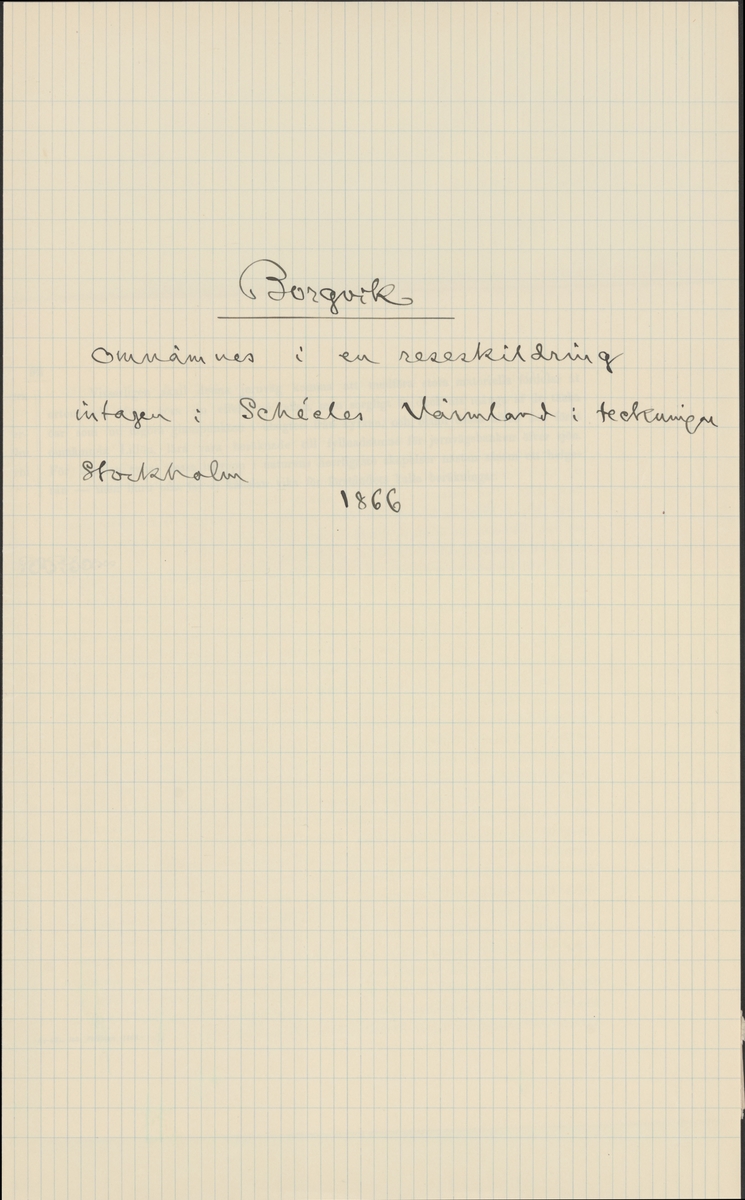 Borgvik
omnämnes i en reseskildring
intagen i Schéeles Värmland i teckningar
Stockholm
1866